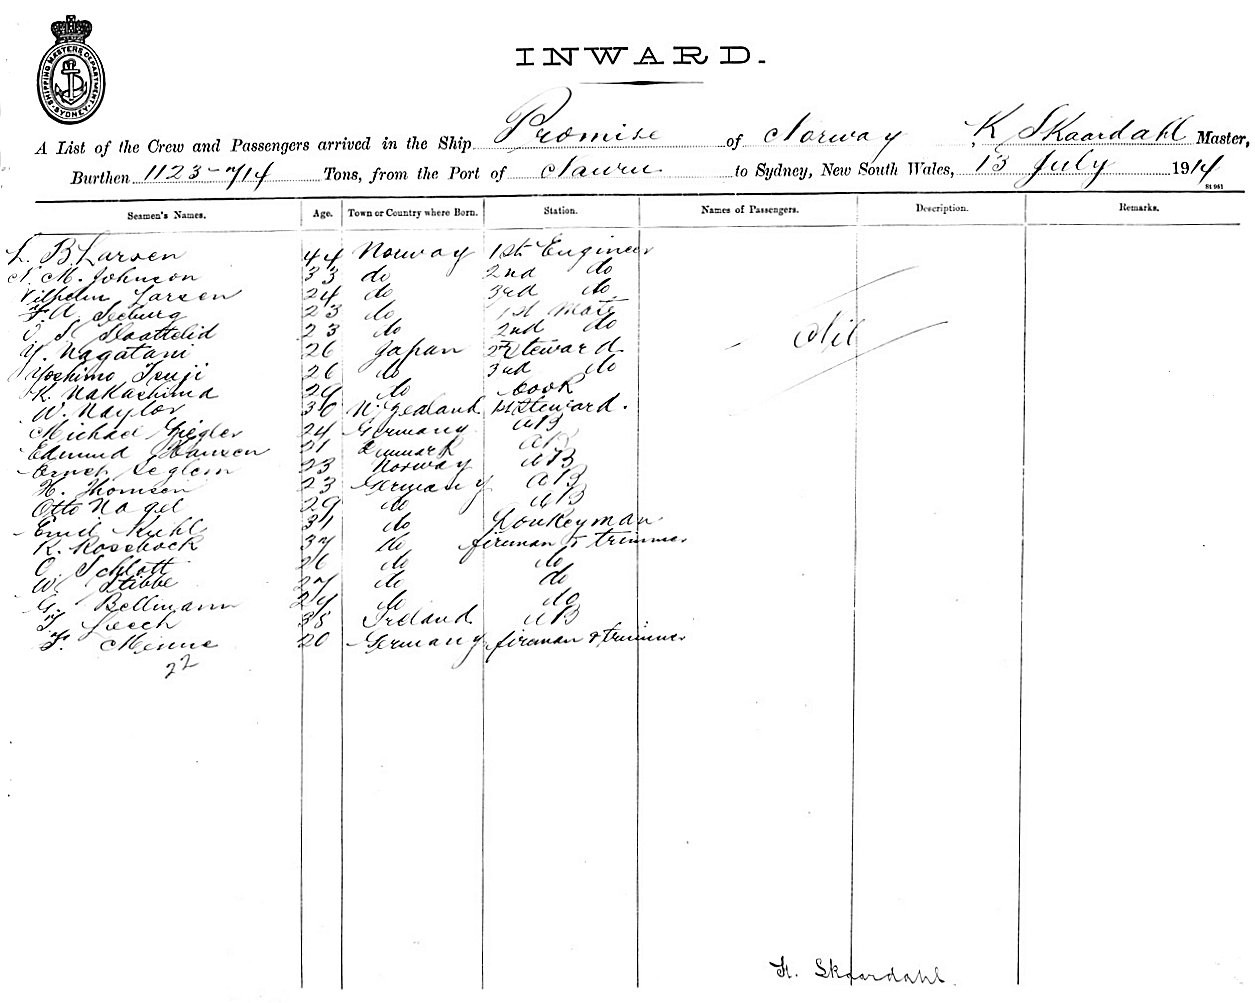 SHIPPING MASTERS DEPARTMENT SYDNEY
INWARD.
A List of the Crew and Passengers arrived in the Ship Promise of Norway K Skaardahl Master,
Burthen 1123 Tons, from the Port of Nauru to Sydney, New South Wales, 13 July 1914
Seamen's Names. Age. Town or Country where Born. Station. Names of Passengers. Description. Remarks.
L. B. Larsen 44 Norway 1st Engineer
N. M. Johnson 33 do 2nd do
Vilhelm Larsen 24 do 3rd do
F. A. Seeburg 23 do 1st Mate
O. S. Slaattelid 23 do 2nd do
Nil
Y. Nagatani 26 Japan 2nd Steward
Yoshimo Tsuji 26 do 3rd do
K. Nakashima 29 do Cook
W. Naylor 36 N. Zealand 1st Steward.
Michael Ziegler 24 Germany AB
Edmund Hansen 21 Denmark AB
Ernst Seglem 23 Norway AB
H. Thomsen 23 Germany AB
Otto Nagel 29 do AB
Emil Kuhl 31 do Donkeyman
R. Rosebock 37 do fireman & trimmer
O. Schlott 26 do do
W. Stibbe 27 do do
G. Bellmann 24 do do
T. Leech 38 Ireland AB
F. Menne 20 Germany fireman & trimmer
22
K. Skaardahl